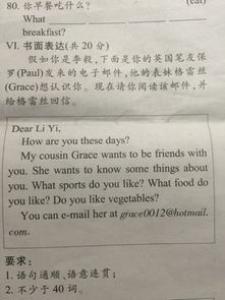 80. 你早餐吃什么? (eat)
What ______ ______ ______ ______
breakfast?
VI. 书面表达(共 20 分)
假如你是李毅,下面是你的英国笔友保
罗(Paul)发来的电子邮件,他的表妹格雷丝
(Grace)想认识你。现在请你阅读该邮件,并
给格雷丝回信。
Dear Li Yi,
How are you these days?
My cousin Grace wants to be friends with
you. She wants to know some things about
you. What sports do you like? What food do
you like? Do you like vegetables?
You can e-mail her at grace0012@hotmail.
com.
要求:
1. 语句通顺、语意连贯;
2. 不少于 40 词。